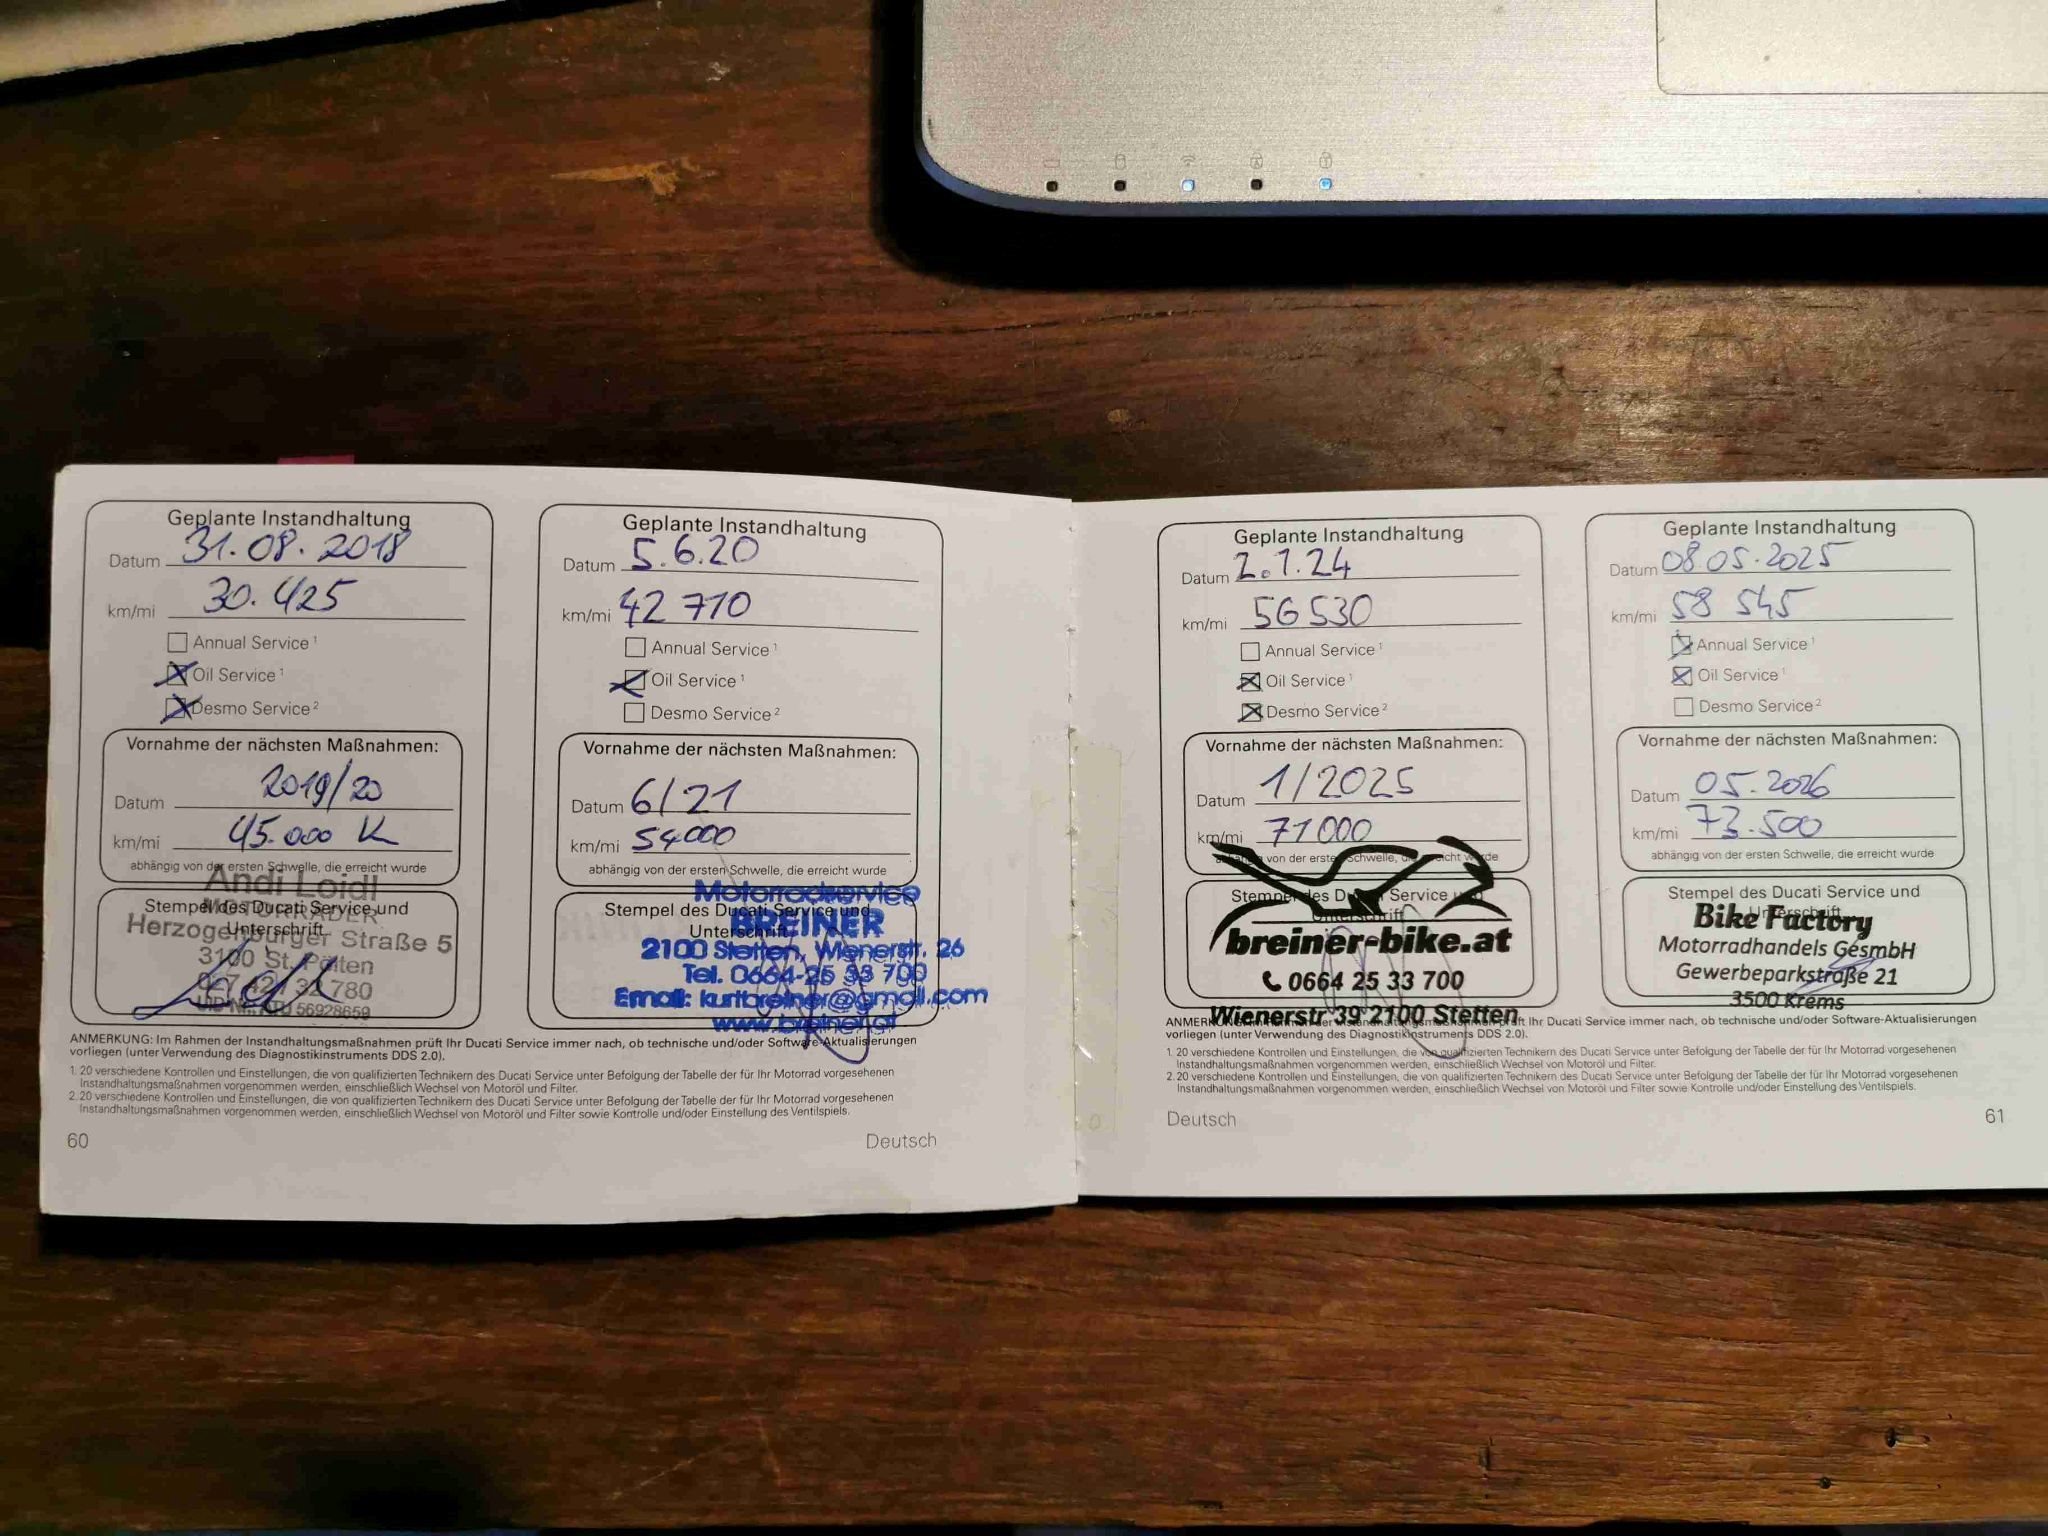 Geplante Instandhaltung
Datum 31.08.2018
km/mi 30.425
Annual Service 1
Oil Service 1
Desmo Service 2
Vornahme der nächsten Maßnahmen:
Datum 2019/20
km/mi 45.000 K
abhängig von der ersten Schwelle, die erreicht wurde
Stempel des Ducati Service und
Unterschrift
Andi Loidl
MOTORRÄDER
Herzogenburger Straße 5
3100 St. Pölten
Geplante Instandhaltung
Datum 5.6.20
km/mi 42 710
Annual Service 1
Oil Service 1
Desmo Service 2
Vornahme der nächsten Maßnahmen:
Datum 6/21
km/mi 54000
abhängig von der ersten Schwelle, die erreicht wurde
Stempel des Ducati Service und
Unterschrift
Motorradservice
BREINER
2100 Stetten, Wienerstr. 26
Tel. 0664-25 33 700
Email: kurtbreiner@gmail.com
www.breiner.at
ANMERKUNG: Im Rahmen der Instandhaltungsmaßnahmen prüft Ihr Ducati Service immer nach, ob technische und/oder Software-Aktualisierungen
vorliegen (unter Verwendung des Diagnostikinstruments DDS 2.0).
1. 20 verschiedene Kontrollen und Einstellungen, die von qualifizierten Technikern des Ducati Service unter Befolgung der Tabelle der für Ihr Motorrad vorgesehenen
Instandhaltungsmaßnahmen vorgenommen werden, einschließlich Wechsel von Motoröl und Filter.
2. 20 verschiedene Kontrollen und Einstellungen, die von qualifizierten Technikern des Ducati Service unter Befolgung der Tabelle der für Ihr Motorrad vorgesehenen
Instandhaltungsmaßnahmen vorgenommen werden, einschließlich Wechsel von Motoröl und Filter sowie Kontrolle und/oder Einstellung des Ventilspiels.
60
Deutsch
Geplante Instandhaltung
Datum 2.1.24
km/mi 56530
Annual Service 1
Oil Service 1
Desmo Service 2
Vornahme der nächsten Maßnahmen:
Datum 1/2025
km/mi 71000
abhängig von der ersten Schwelle, die erreicht wurde
Stempel des Ducati Service und
Unterschrift
breiner-bike.at
0664 25 33 700
Wienerstr 39 2100 Stetten
Geplante Instandhaltung
Datum 08.05.2025
km/mi 58 545
Annual Service 1
Oil Service 1
Desmo Service 2
Vornahme der nächsten Maßnahmen:
Datum 05.2026
km/mi 73.500
abhängig von der ersten Schwelle, die erreicht wurde
Stempel des Ducati Service und
Unterschrift
Bike Factory
Motorradhandels GesmbH
Gewerbeparkstraße 21
3500 Krems
ANMERKUNG: Im Rahmen der Instandhaltungsmaßnahmen prüft Ihr Ducati Service immer nach, ob technische und/oder Software-Aktualisierungen
vorliegen (unter Verwendung des Diagnostikinstruments DDS 2.0).
1. 20 verschiedene Kontrollen und Einstellungen, die von qualifizierten Technikern des Ducati Service unter Befolgung der Tabelle der für Ihr Motorrad vorgesehenen
Instandhaltungsmaßnahmen vorgenommen werden, einschließlich Wechsel von Motoröl und Filter.
2. 20 verschiedene Kontrollen und Einstellungen, die von qualifizierten Technikern des Ducati Service unter Befolgung der Tabelle der für Ihr Motorrad vorgesehenen
Instandhaltungsmaßnahmen vorgenommen werden, einschließlich Wechsel von Motoröl und Filter sowie Kontrolle und/oder Einstellung des Ventilspiels.
Deutsch
61